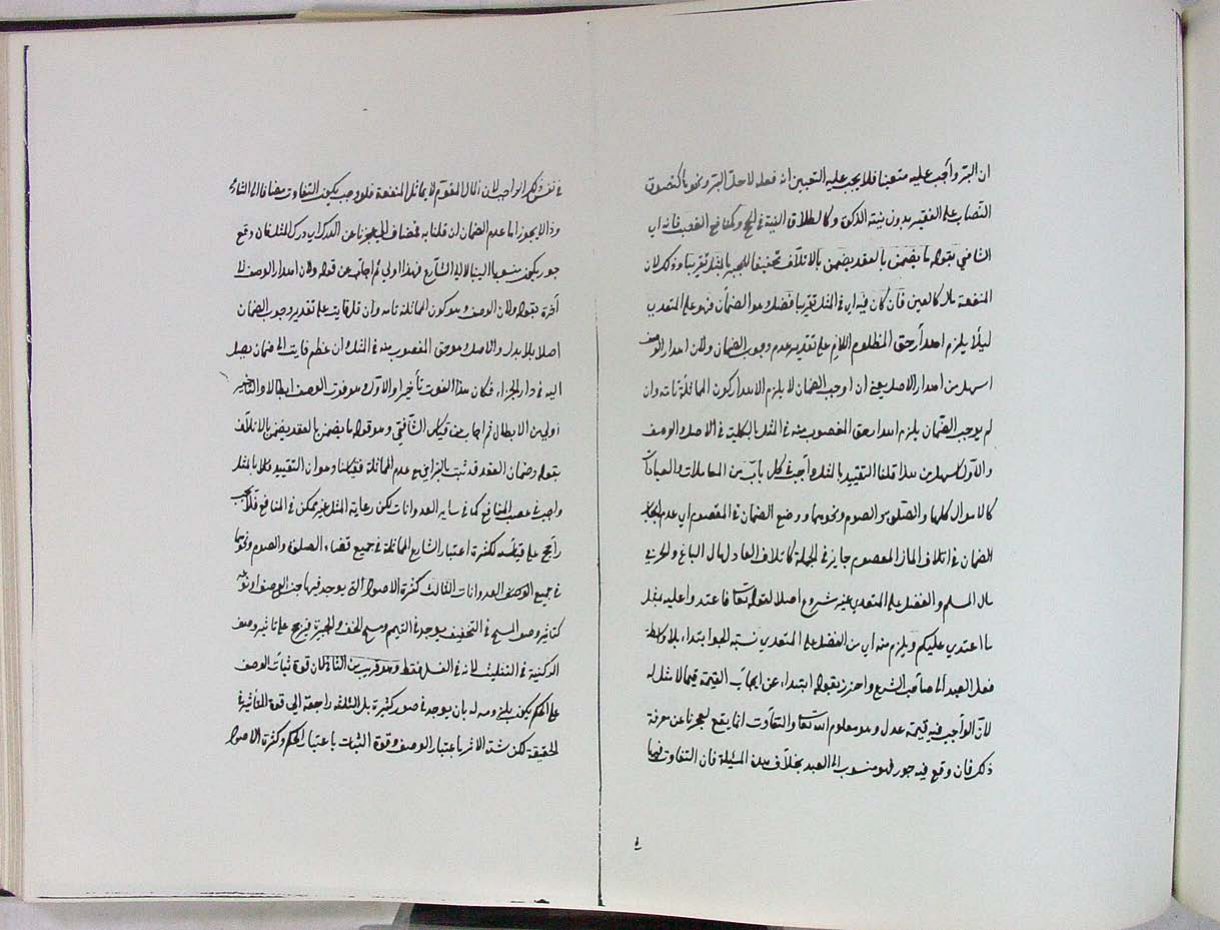 ان البر واجب عليه متعينا فلا يجب عليه التعيين انه فعله لاجل البر ونحوها كتصدق
النصاب على الفقير بدون نية الزكوة وكاطلاق النية في الحج وكمنافع الغصب فانه اي
الشافعي يقول ما يضمن بالعقد يضمن بالاتلاف تحقيقا للجبر بالمثل تقريبا وذلك لان
المنفعة مال كالعين فان كان فيه اي في المثل تقريبا فضل وهو الضمان فهو على المتعدي
ليلا يلزم اهدار حق المظلوم اللازم على تقدير عدم وجوب الضمان ولان اهدار الوصف
اسهل من اهدار الاصل يعني ان اوجب الضمان لا يلزم الا اهدار كون المماثلة تامة وان
لم يوجب الضمان يلزم اهدار حق المغصوب منه في المثل بالكلية في الاصل والوصف
والاول اسهل من هذا قلنا التقييد بالمثل واجب في كل باب من المعاملات والعبادات
كالاموال كلها والصلوة والصوم ونحوهما ووضع الضمان في المعصوم اي عدم ايجاب
الضمان في اتلاف المال المعصوم جايز في الجملة كاتلاف العادل مال الباغي والحربي
مال المسلم والفضل على المتعدي غير مشروع اصلا لقوله تعالى فاعتدوا عليه بمثل
ما اعتدى عليكم ويلزم منه اي من الفضل على المتعدي نسبة الجور ابتداء بلا واسطة
فعل العبد الى صاحب الشرع واحترز بقوله ابتداء عن ايجاب القيمة فيما لا مثل له
لان الواجب فيه قيمة عدل وهو معلوم الله تعالى والتفاوت انما يقع لعجزنا عن معرفة
ذلك فان وقع فيه جور فهو منسوب الى العبد بخلاف هذه المسئلة فان التفاوت فيها
في
في نفس ذلك الواجب لان المال المقوم لا يماثل المنفعة فلو وجب يكون التفاوت مضافا الى الشارع
وذا لا يجوز اما عدم الضمان لو قلنا به فمضاف الى عجزنا عن الدرك اي درك المثل فان وقع
جور يكون منسوبا الينا لا الى الشارع فهذا اولى ثم اجاب عن قوله ولان اهدار الوصف لا
آخره بقوله ولان الوصف وهو كون المماثلة تامة وان قل فايت على تقدير وجوب الضمان
اصلا بلا بدل والاصل وهو حق المغصوب منه في المثل وان عظم فايت الى ضمان يصل
اليه في دار الجزاء فكان هذا الفوت تأخيرا والاول وهو فوت الوصف ابطالا والتاخير
اولى من الابطال ثم اجاب عن قياس الشافعي وهو قوله ما يضمن بالعقد يضمن بالاتلاف
بقوله وضمان العقد قد ثبت بالتراضي مع عدم المماثلة فقياسنا وهو ان التقييد بالمثل
واجب في غصب المنافع كما في ساير العدوانات لكن رعاية المثل غير ممكن في المنافع فلا يجب
راجح على قياسه لكثرة اعتبار الشارع المماثلة في جميع قضاء الصلوة والصوم ونحوهما
في جميع العدوانات الثالث كثرة الاصول التي يوجد فيها جنس الوصف او نوعه
كتاثير وصف المسح في التخفيف يوجد في التيمم ومسح الخف والجبيرة فيرجح على تاثير وصف
الركنية في التثليث لانه في الغسل فقط وهو قريب من الثاني لان قوة ثبات الوصف
على الحكم يكون بلزومه له بان يوجد في صور كثيرة بل الثلثة راجعة الى قوة التأثير في
الحقيقة لكن شدة الاثر باعتبار الوصف وقوة الثبات باعتبار الحكم وكثرة الاصول